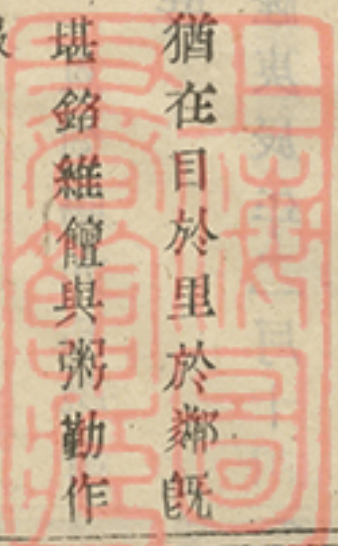 猶在目於里於鄰既
堪銘維饘與粥勤作